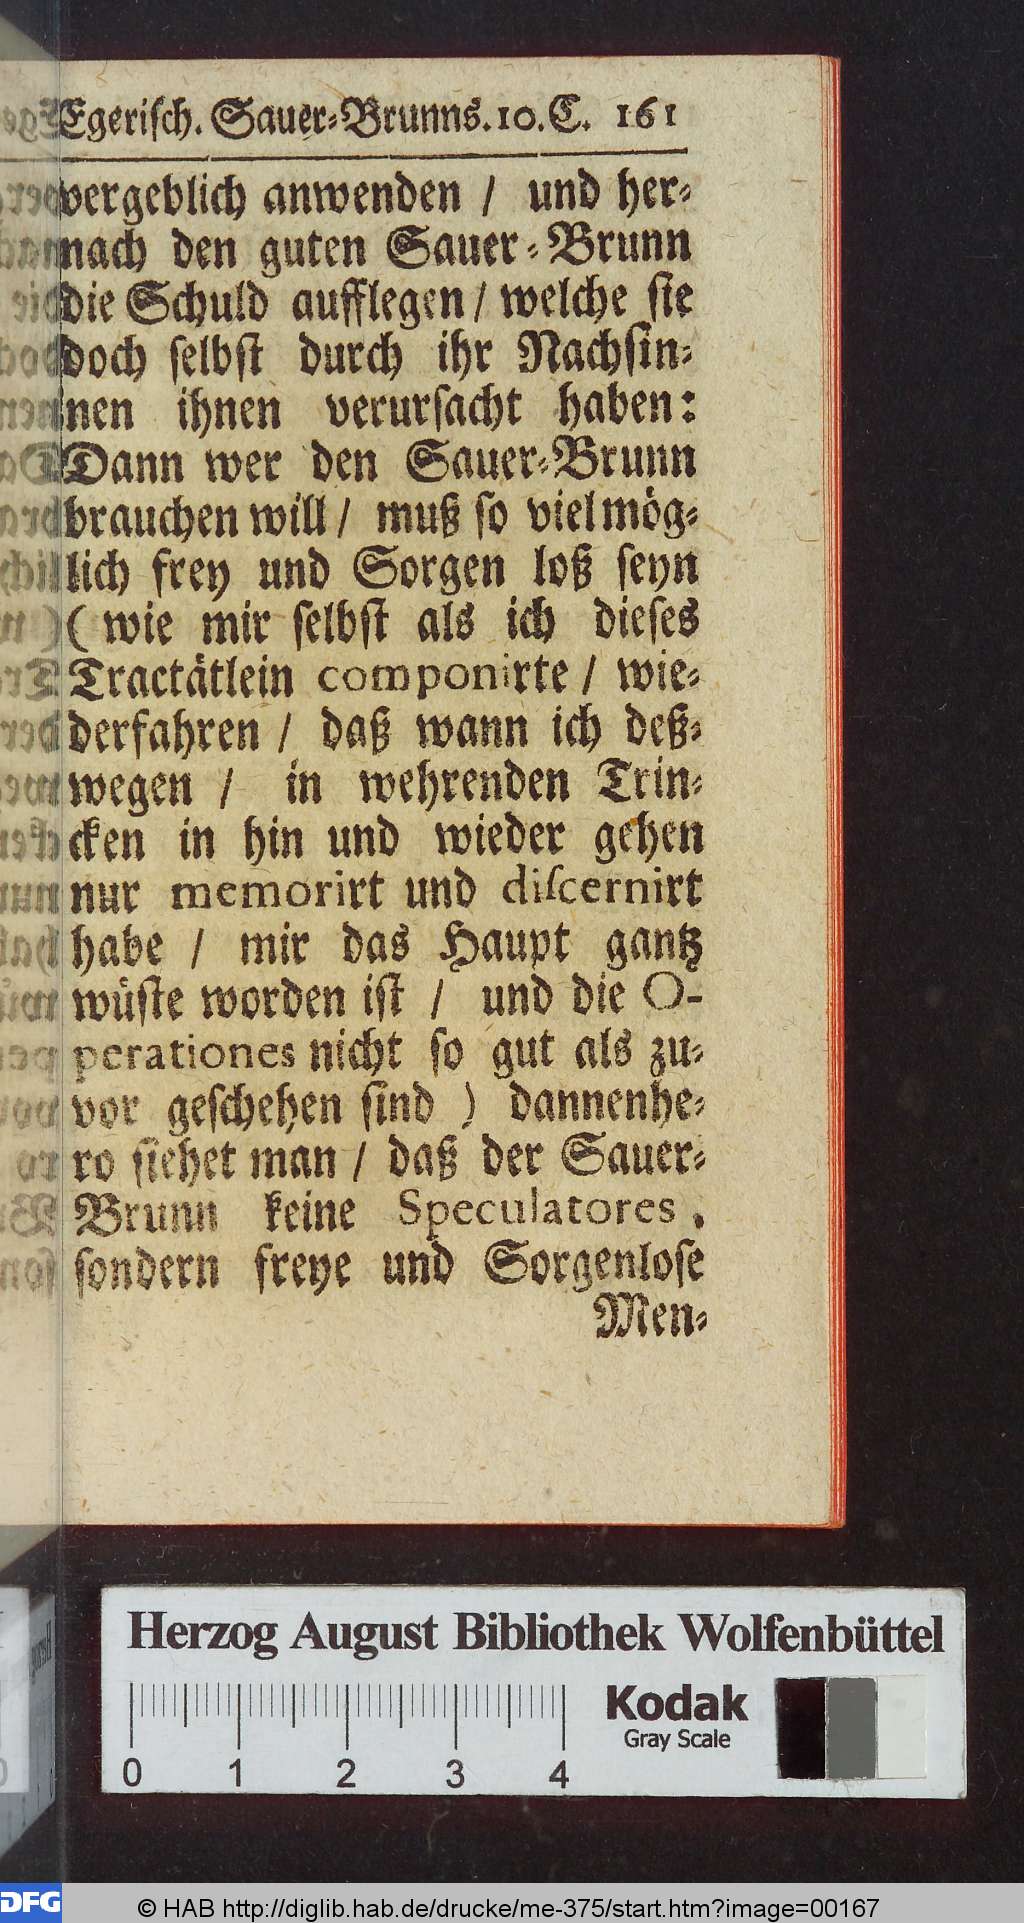 Egerisch. Sauer-Brunns. 10. C. 161
vergeblich anwenden / und her-
nach den guten Sauer-Brunn
die Schuld aufflegen / welche sie
doch selbst durch ihr Nachsin-
nen ihnen verursacht haben:
Dann wer den Sauer-Brunn
brauchen will / muß so viel mög-
lich frey und Sorgen loß seyn
( wie mir selbst als ich dieses
Tractätlein componirte / wie-
derfahren / daß wann ich deß-
wegen / in wehrenden Trin-
cken in hin und wieder gehen
nur memorirt und discernirt
habe / mir das Haupt gantz
wüste worden ist / und die O-
perationes nicht so gut als zu-
vor geschehen sind ) dannenhe-
ro siehet man / daß der Sauer-
Brunn keine Speculatores,
sondern freye und Sorgenlose
Men-
Herzog August Bibliothek Wolfenbüttel
Kodak
Gray Scale
0 1 2 3 4
DFG
© HAB http://diglib.hab.de/drucke/me-375/start.htm?image=00167